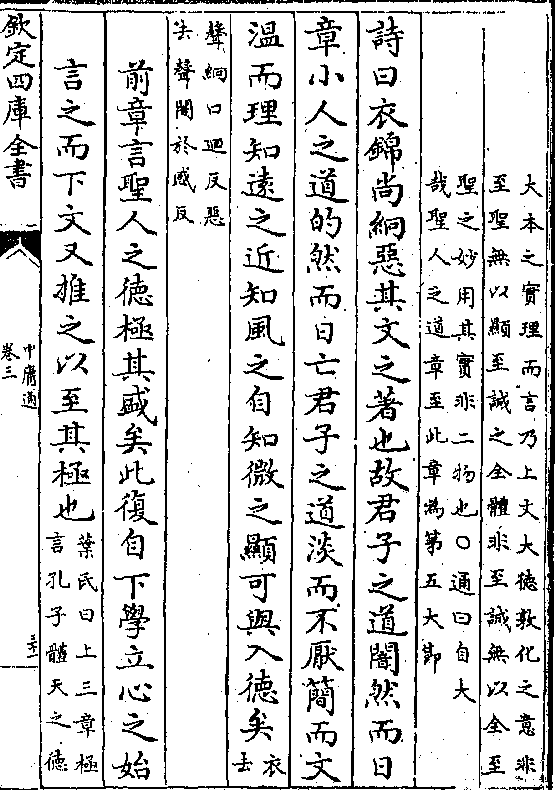 大本之實理而言乃上文大德敦化之意非
至聖無以顯至誠之全體非至誠無以全至
聖之妙用其實非二物也〇通曰自大
哉聖人之道章至此章為第五大節
詩曰衣錦尚絅惡其文之著也故君子之道闇然而日
章小人之道的然而日亡君子之道淡而不厭簡而文
溫而理知遠之近知風之自知微之顯可與入德矣衣去
聲絅口迥反惡
去聲闇於感反
前章言聖人之德極其盛矣此復自下學立心之始
言之而下文又推之以至其極也葉氏曰上三章極
言孔子體天之德
欽定四庫全書
中庸通
卷三